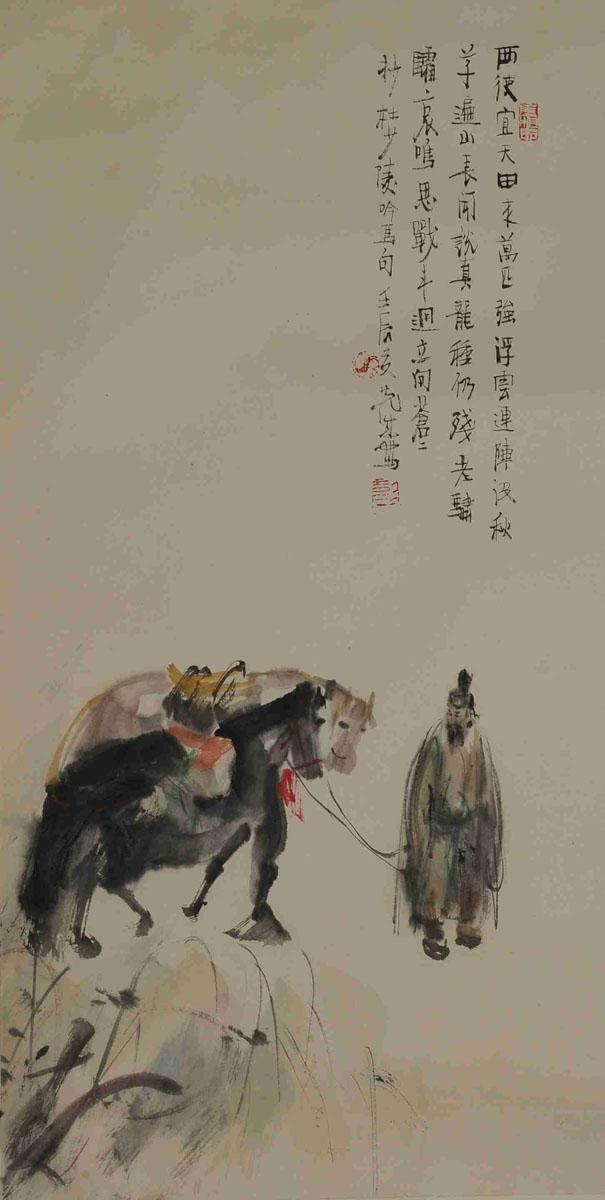 西使宜天田来萬匹強浮雲連陣没秋
草遍山長闻說真龍種仍残老驌
驦哀鳴思戰斗迥立向蒼〻
抄杜少陵吟馬句壬辰